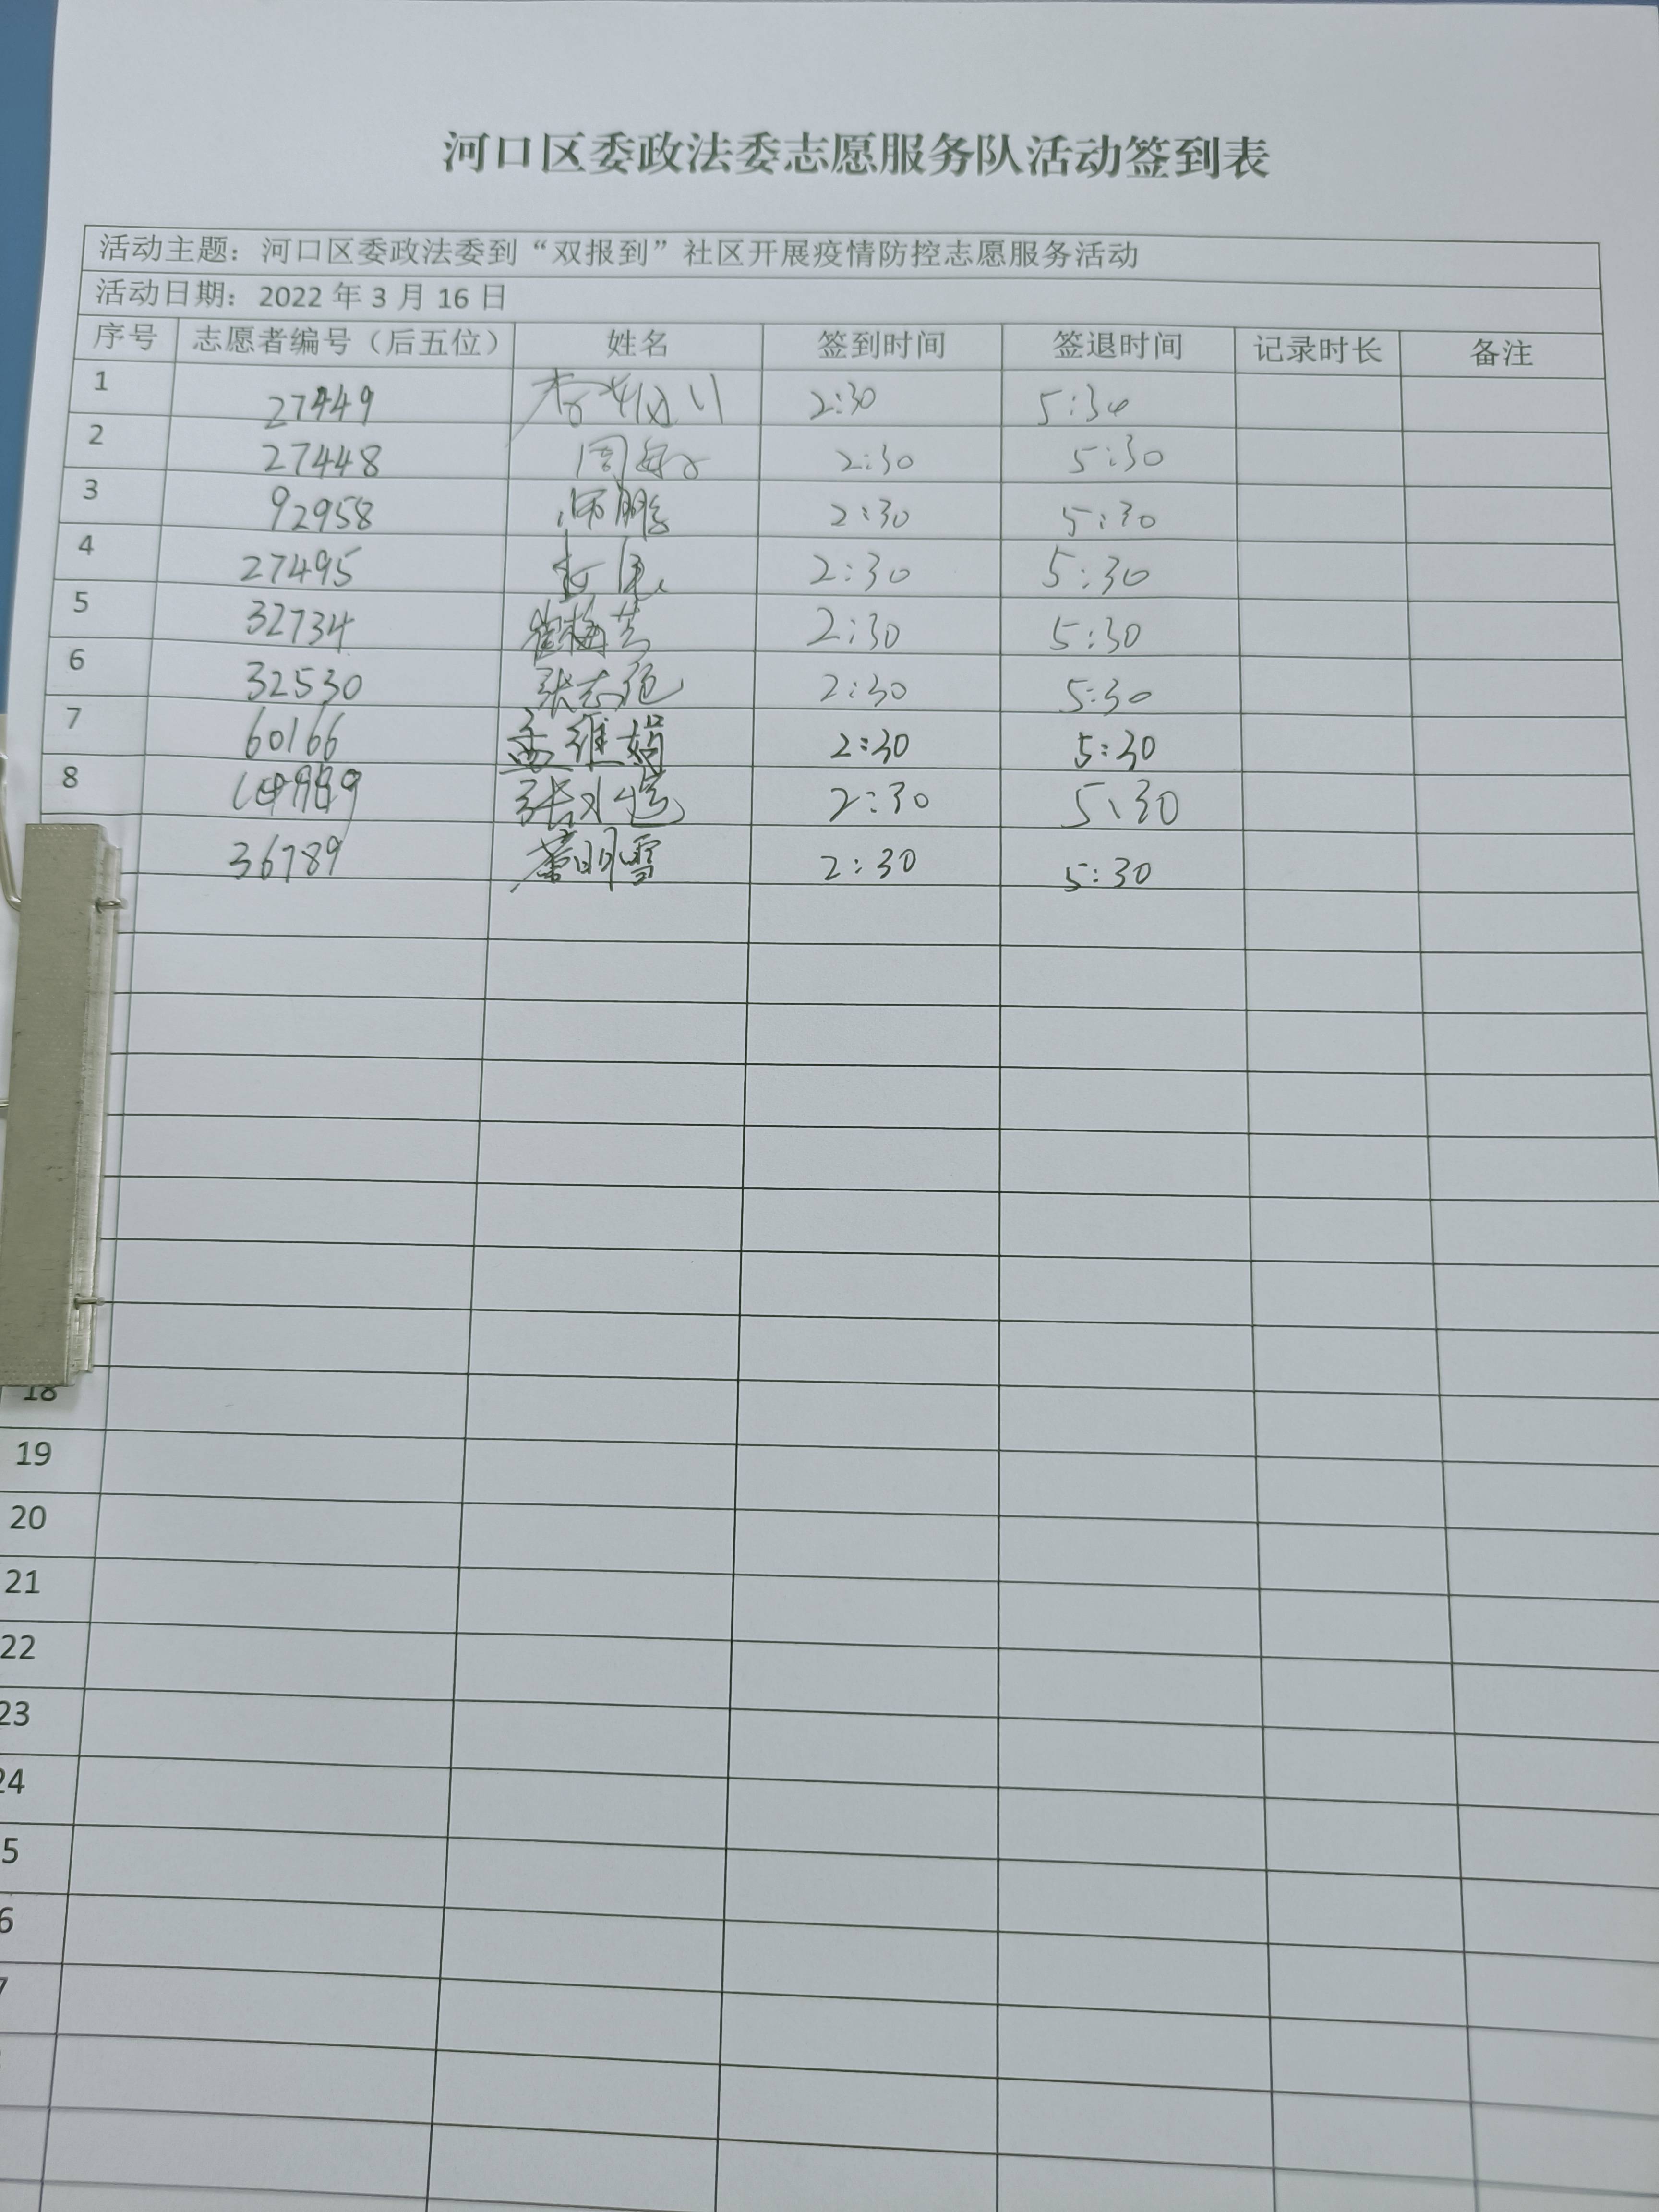 河口区委政法委志愿服务队活动签到表
活动主题：河口区委政法委到“双报到”社区开展疫情防控志愿服务活动
活动日期：2022 年 3 月 16 日
序号 志愿者编号（后五位） 姓名 签到时间 签退时间 记录时长 备注
1 27449 2:30 5:30
2 27448 周敏 2:30 5:30
3 92958 2:30 5:30
4 27495 2:30 5:30
5 32734 崔梅芳 2:30 5:30
6 32530 张志强 2:30 5:30
7 60166 孟维娟 2:30 5:30
8 2:30 5:30
36789 董明雪 2:30 5:30
18
19
20
21
22
23
24
5
6
7